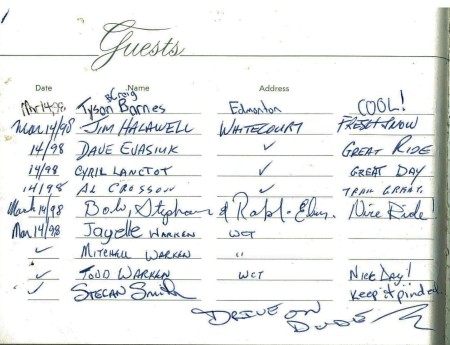 Guests
Date Name Address
& Craig
Mar 14/98 Tyson Barnes Edmonton COOL!
Mar 14/98 JIM HALAWELL WHITECOURT FRESH SNOW
14/98 DAVE EVASIUK ✓ GREAT RIDE
14/98 CYRIL LANCTOT ✓ GREAT DAY
14/98 AL CROSSON ✓ TRAIL GREAT.
March 14/98 Bob, Stephan & Nice Ride!
Mar 14/98 Jayelle WARREN WCT
✓ MITCHELL WARREN "
✓ TODD WARREN WCT NICE DAY!
✓ STEFAN Smith Keep it pinned.
DRIVE ON
DUDE